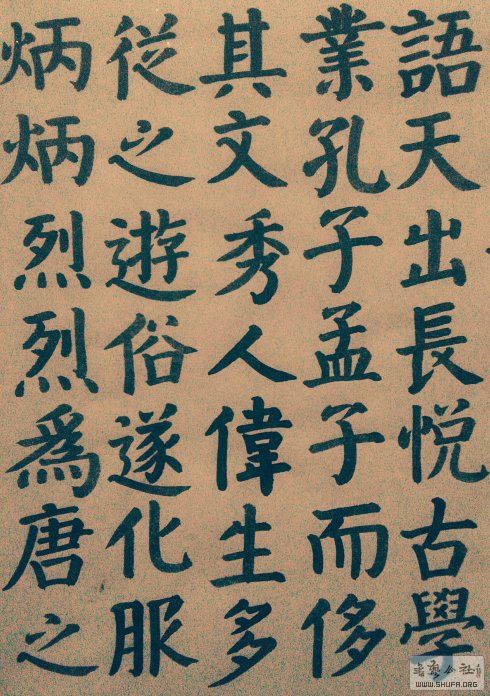 語天出長悅古學
業孔子孟子而侈
其文秀人偉生多
從之遊俗遂化服
炳炳烈烈為唐之
WWW.SHUFA.ORG